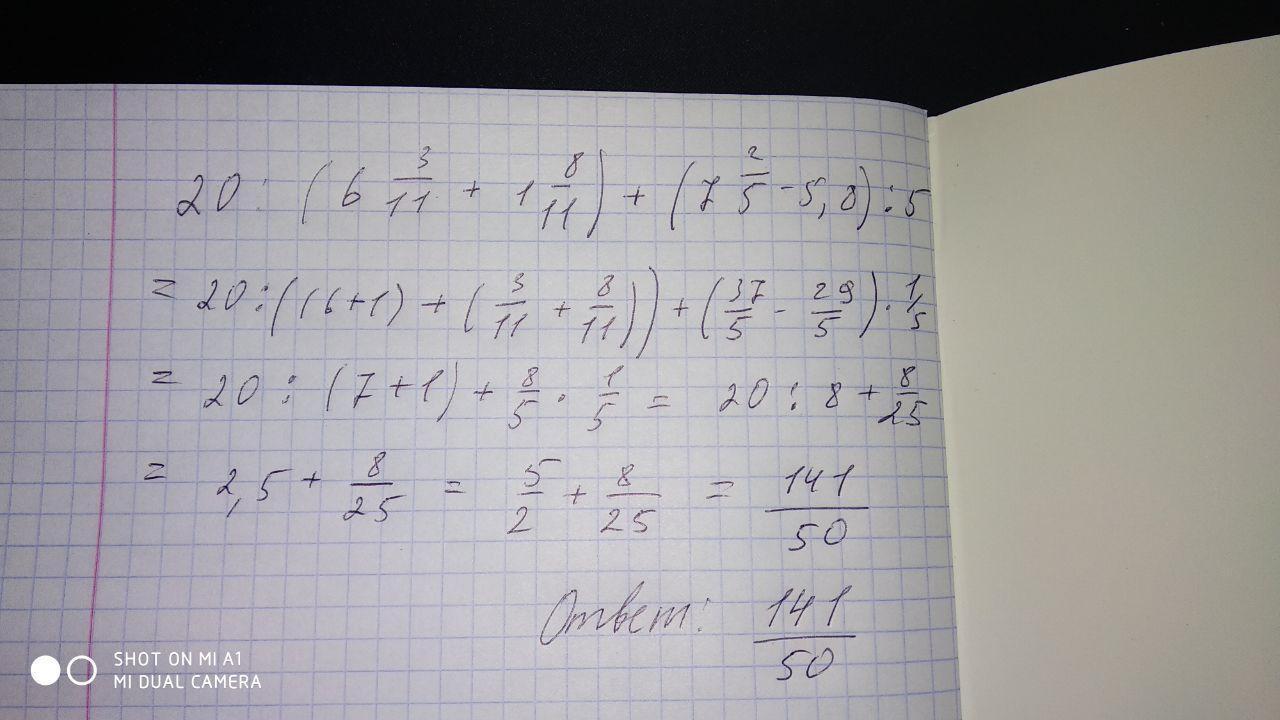 20 : (6 3/11 + 1 8/11) + (7 2/5 - 5,8) : 5
= 20 : ((6+1) + (3/11 + 8/11)) + (37/5 - 29/5) · 1/5
= 20 : (7+1) + 8/5 · 1/5 = 20 : 8 + 8/25
= 2,5 + 8/25 = 5/2 + 8/25 = 141/50
Ответ: 141/50
SHOT ON MI A1
MI DUAL CAMERA